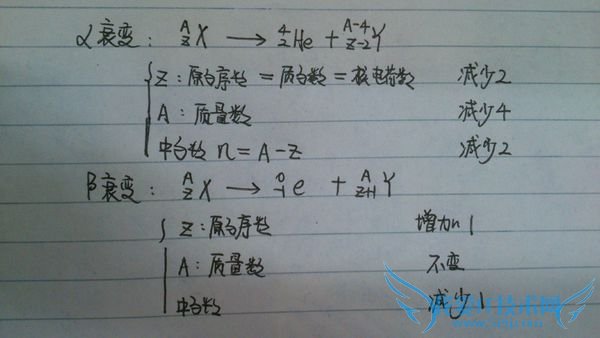 α衰变: ᴬ_Z X → ⁴₂He + ᴬ⁻⁴_Z-2 Y
Z: 原子序数 = 质子数 = 核电荷数 减少2
A: 质量数 减少4
中子数 n = A-Z 减少2
β衰变: ᴬ_Z X → ⁰₋₁e + ᴬ_Z+1 Y
Z: 原子序数 增加 1
A: 质量数 不变
中子数 减少1